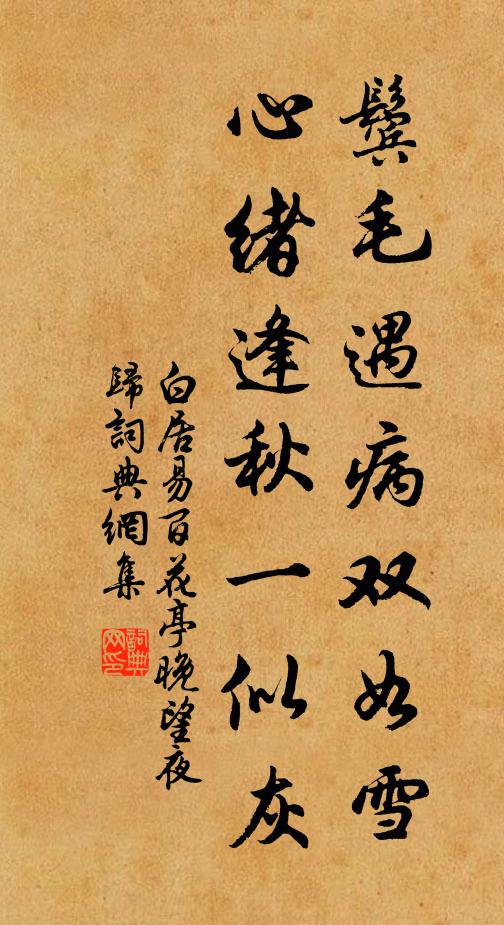 鬓毛遇病双如雪
心绪逢秋一似灰
白居易百花亭晚望夜
歸詞典網集
詞典网印